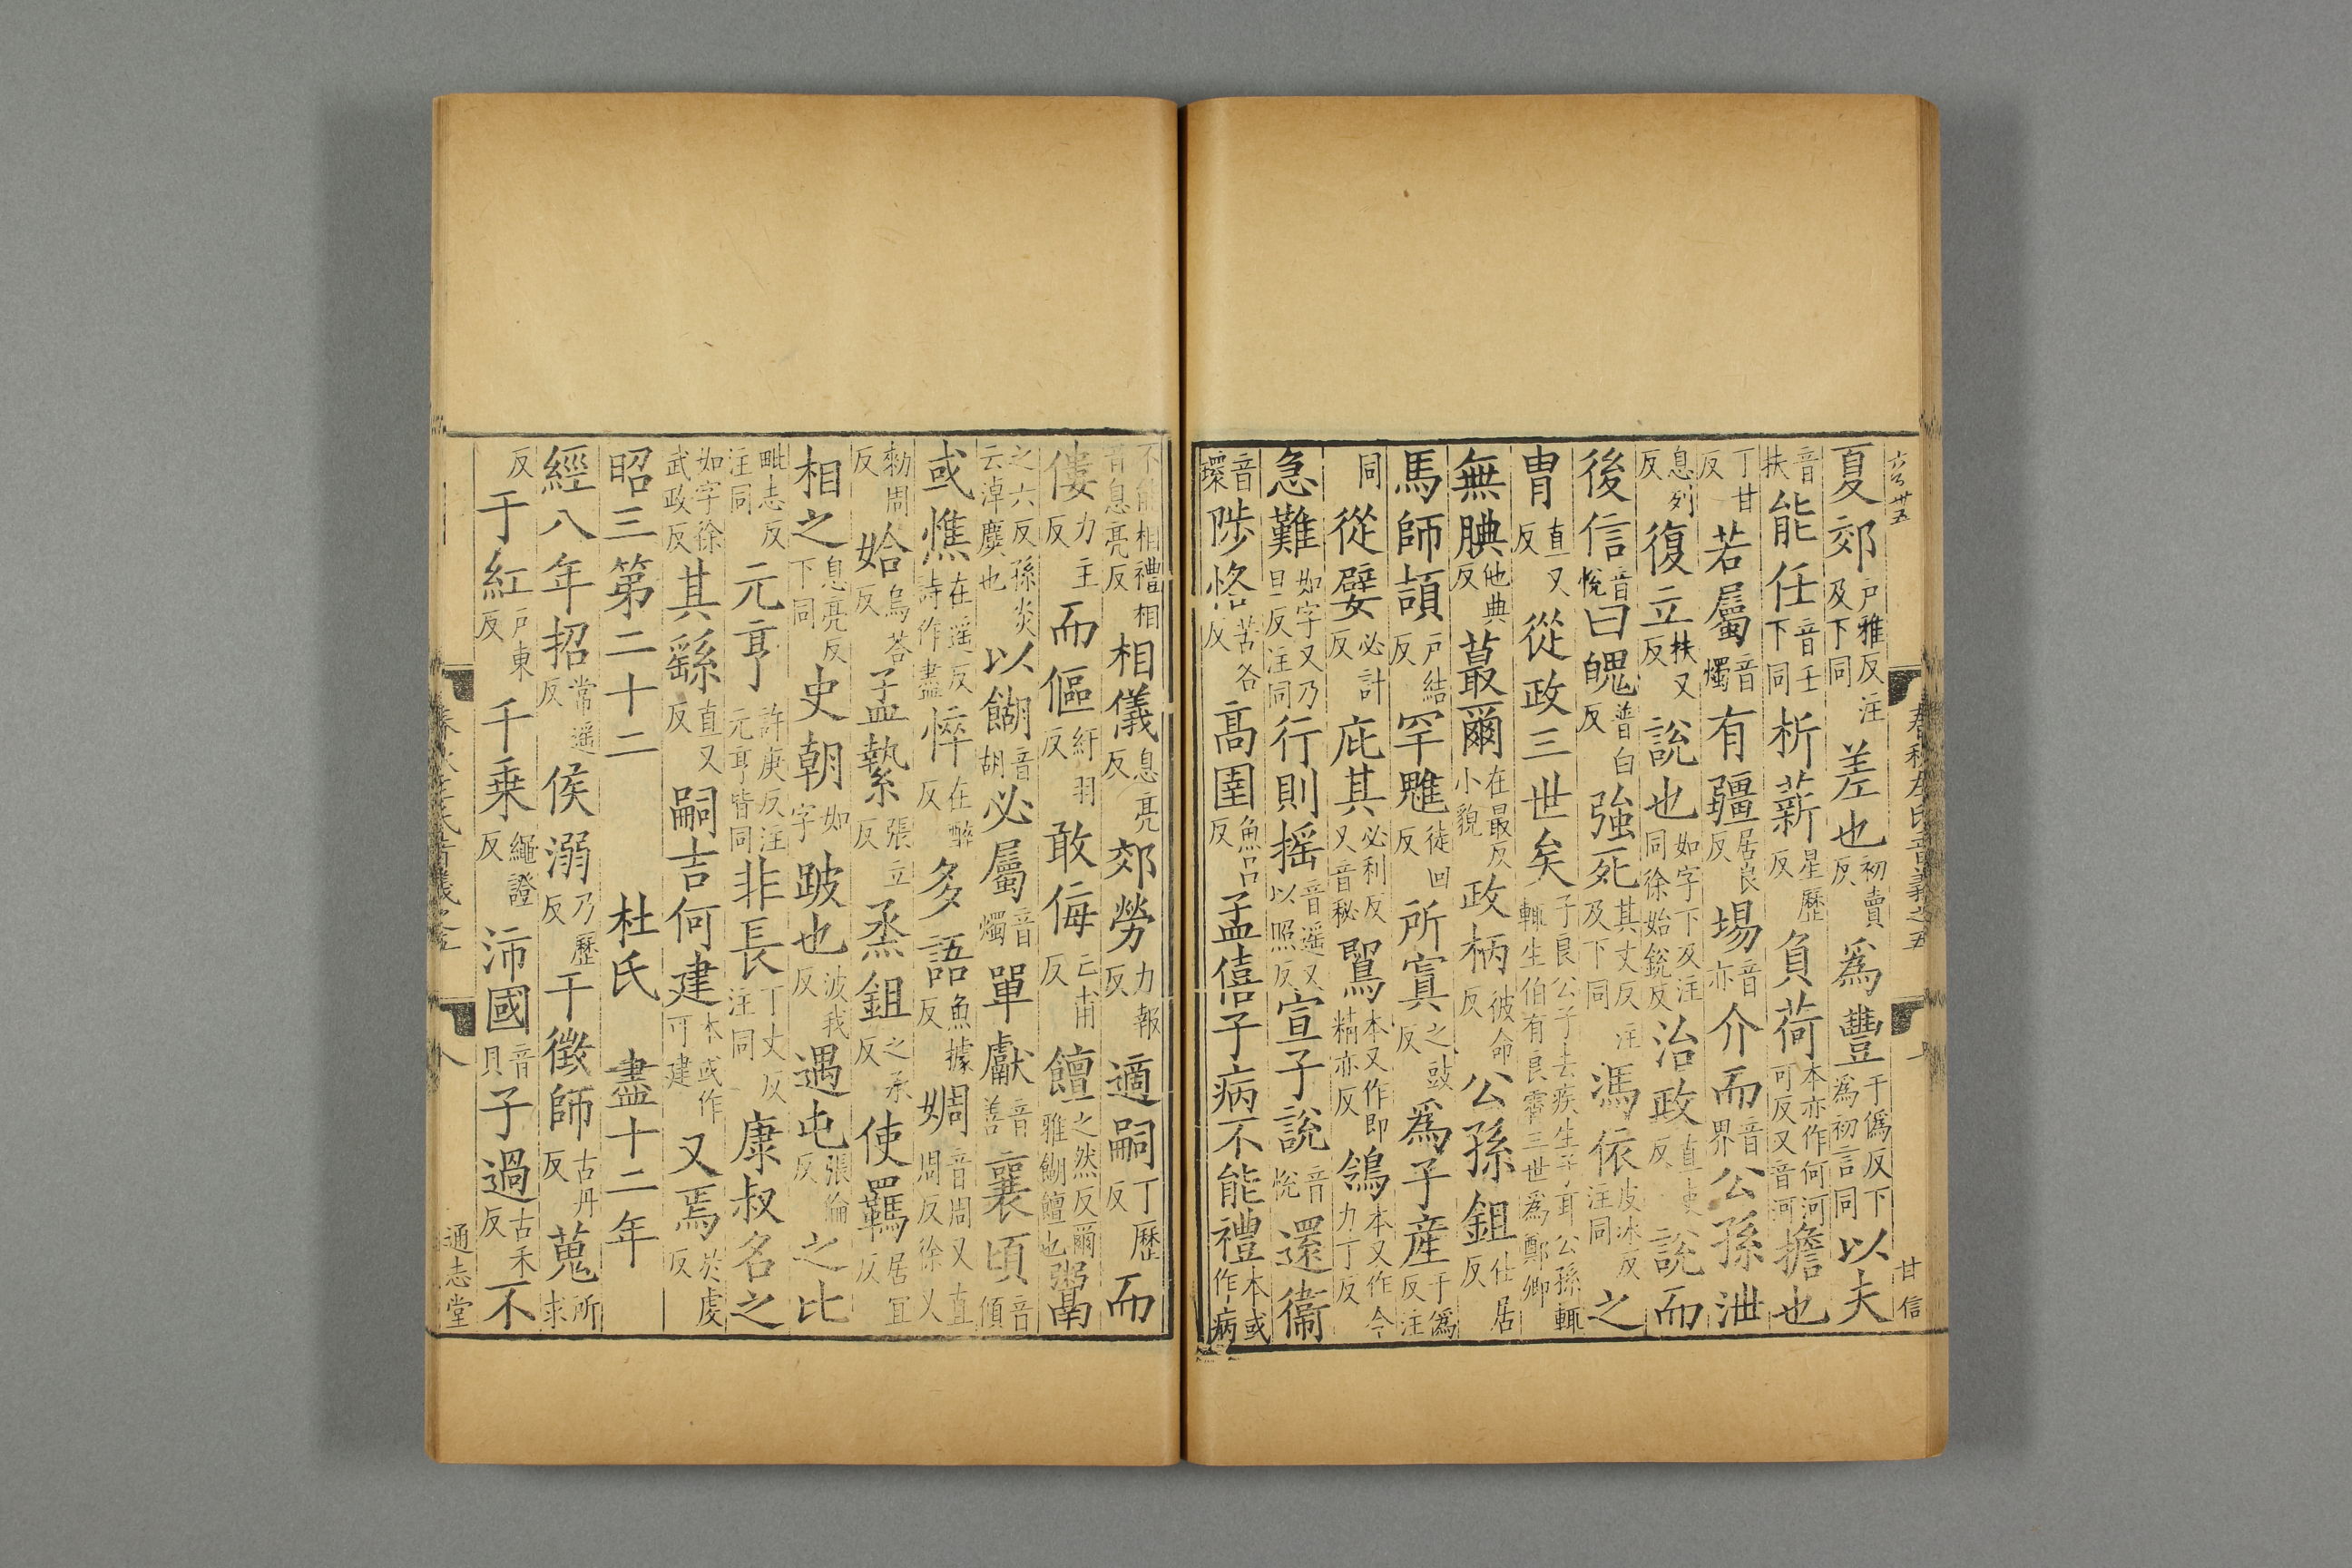 夏郊户雅反注及下同差也初賣反爲豐于僞反下爲初言同以夫
音扶能任音壬下同析薪星歷反負荷本亦作何河可反又音河擔也
丁甘反若屬音燭有疆居良反場音亦介而音界公孫泄
息列反復立扶又反說也如字下及注同徐始銳反治政直吏反說而
後信音悅曰魄普白反強死其丈反注及下同馮依皮冰反注同之
胄直又反從政三世矣子良公子去疾生子耳公孫輒輒生伯有良霄三世爲鄭卿
無腆他典反蕞爾在最反小貌政柄彼命反公孫鉏仕居反
馬師頡户結反罕魋徒回反所寘之豉反爲子産于僞反注
同從嬖必計反庇其必利反又音秘鴽本又作即精亦反鴒本又作令力丁反
急難如字又乃旦反注同行則摇音遥又以照反宣子說音悅還衞
音環陟恪苦各反高圉魚吕反孟僖子病不能禮本或作病
不能相禮相音息亮反相儀息亮反郊勞力報反適嗣丁歷反而
僂力主反而傴紆羽反敢侮亡甫反饘之然反爾雅餬饘也鬻
之六反孫炎云淖糜也以餬音胡必屬音燭單獻音善襄頃音傾
或憔在遥反詩作盡悴在醉反多語魚據反婤音周又直周反徐又
勑周反姶烏荅反孟縶張立反烝鉏之承反使羈居宜反
相之息亮反下同史朝如字跛也波我反遇屯張倫反之比
毗志反注同元亨許庚反注元亨皆同非長丁丈反注同康叔名之
如字徐武政反其繇直又反嗣吉何建本或作可建又焉於虔反
昭三第二十二 杜氏 盡十二年
經八年招常遥反侯溺乃歷反干徵師古丹反蒐所求
反于紅户東反千乗繩證反沛國音貝子過古禾反不
通志堂